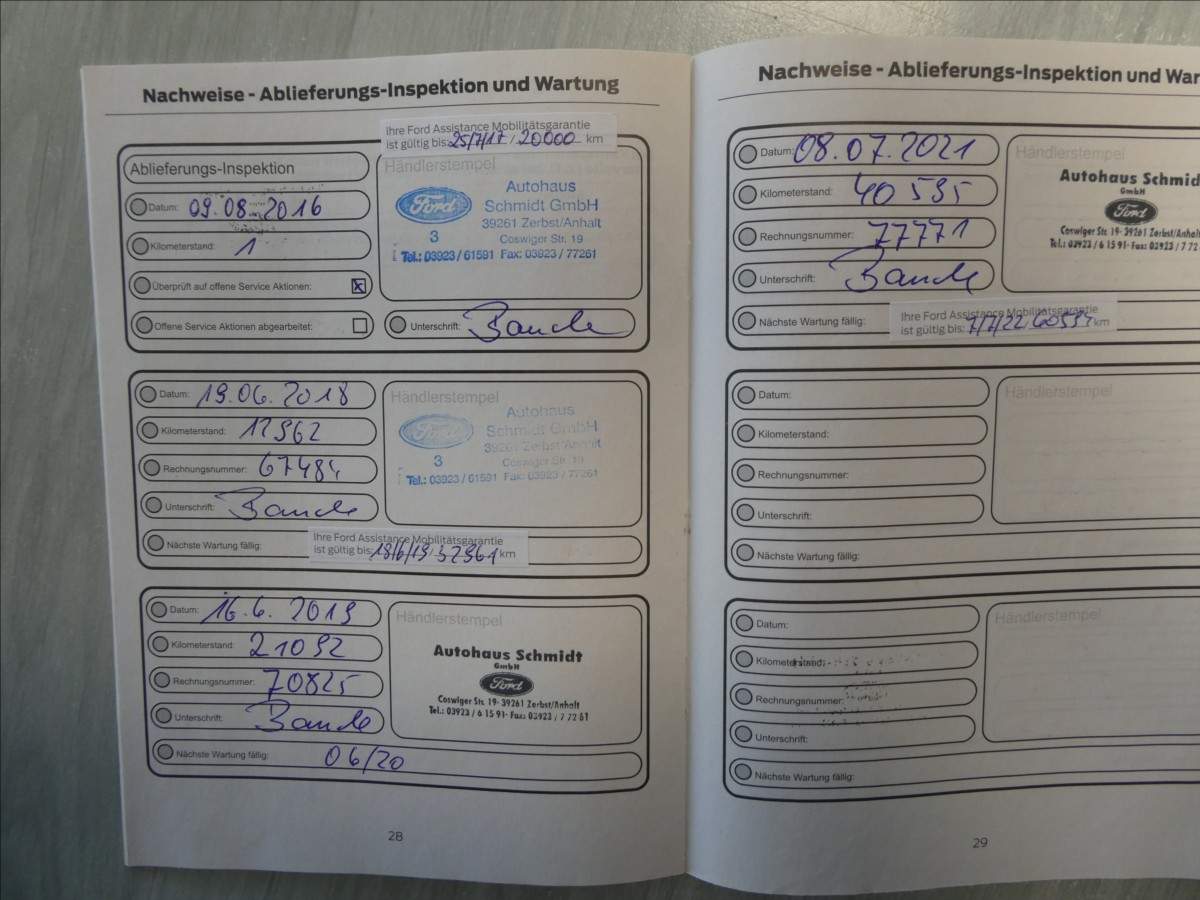 Nachweise - Ablieferungs-Inspektion und Wartung
Ihre Ford Assistance Mobilitätsgarantie
ist gültig bis: 25/7/17 / 20000 km
Ablieferungs-Inspektion
Händlerstempel
Datum: 09.08.2016
Kilometerstand: 1
Überprüft auf offene Service Aktionen: x
Offene Service Aktionen abgearbeitet:
Ford
3
Autohaus
Schmidt GmbH
39261 Zerbst/Anhalt
Coswiger Str. 19
Tel.: 03923 / 61591 Fax: 03923 / 77261
Unterschrift:
Datum: 19.06.2018
Kilometerstand: 12962
Rechnungsnummer: 67484
Unterschrift:
Händlerstempel
Ford
3
Autohaus
Schmidt GmbH
39261 Zerbst/Anhalt
Coswiger Str. 19
Tel.: 03923 / 61591 Fax: 03923 / 77261
Nächste Wartung fällig:
Ihre Ford Assistance Mobilitätsgarantie
ist gültig bis: 18/6/19 / 32961 km
Datum: 16.6.2019
Kilometerstand: 21092
Rechnungsnummer: 70825
Unterschrift:
Händlerstempel
Autohaus Schmidt
GmbH
Ford
Coswiger Str. 19 - 39261 Zerbst/Anhalt
Tel.: 03923 / 6 15 91 - Fax: 03923 / 7 72 61
Nächste Wartung fällig: 06/20
28
Nachweise - Ablieferungs-Inspektion und War
Datum: 08.07.2021
Kilometerstand: 40595
Rechnungsnummer: 77771
Unterschrift:
Händlerstempel
Autohaus Schmid
GmbH
Ford
Coswiger Str. 19 - 39261 Zerbst/Anhal
Tel.: 03923 / 6 15 91 - Fax: 03923 / 7 72
Nächste Wartung fällig:
Ihre Ford Assistance Mobilitätsgarantie
ist gültig bis: 7/7/22 / 60594 km
Datum:
Kilometerstand:
Rechnungsnummer:
Unterschrift:
Nächste Wartung fällig:
Händlerstempel
Datum:
Kilometerstand:
Rechnungsnummer:
Unterschrift:
Nächste Wartung fällig:
Händlerstempel
29